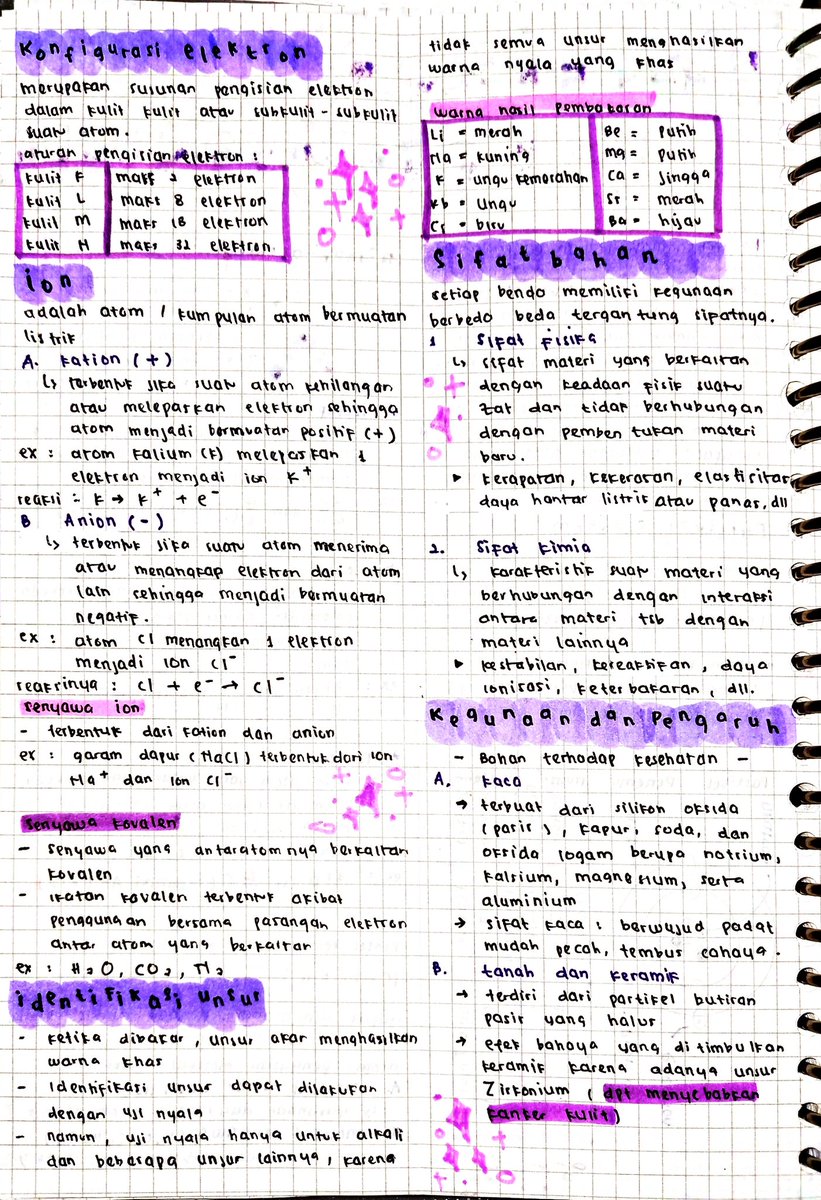 Konfigurasi elektron
merupakan susunan pengisian elektron
dalam kulit kulit atau subkulit - subkulit
suatu atom.
aturan pengisian elektron :
kulit K maks 2 elektron
kulit L maks 8 elektron
kulit M maks 18 elektron
kulit N maks 32 elektron
ion
adalah atom / kumpulan atom bermuatan
listrik
A. kation (+)
↳ terbentuk jika suatu atom kehilangan
atau melepaskan elektron sehingga
atom menjadi bermuatan positif (+)
ex : atom kalium (K) melepaskan 1
elektron menjadi ion K⁺
reaksi : K → K⁺ + e⁻
B Anion (-)
↳ terbentuk jika suatu atom menerima
atau menangkap elektron dari atom
lain sehingga menjadi bermuatan
negatif.
ex : atom Cl menangkan 1 elektron
menjadi ion Cl⁻
reaksinya : Cl + e⁻ → Cl⁻
senyawa ion
- terbentuk dari kation dan anion
ex : garam dapur (NaCl) terbentuk dari ion
Na⁺ dan ion Cl⁻
senyawa kovalen
- senyawa yang antaratomnya berkaitan
kovalen
- ikatan kovalen terbentuk akibat
penggunaan bersama pasangan elektron
antar atom yang berkaitan
ex : H₂O, CO₂, N₂
identifikasi unsur
- ketika dibakar, unsur akan menghasilkan
warna khas
- identifikasi unsur dapat dilakukan
dengan uji nyala
- namun, uji nyala hanya untuk alkali
dan beberapa unsur lainnya, karena
tidak semua unsur menghasilkan
warna nyala yang khas
warna hasil pembakaran
Li = merah Be = putih
Na = kuning Mg = putih
K = ungu kemerahan Ca = jingga
Rb = ungu Sr = merah
Cs = biru Ba = hijau
Sifat bahan
setiap benda memiliki kegunaan
berbeda beda tergantung sifatnya.
1 Sifat fisika
↳ sifat materi yang berkaitan
dengan keadaan fisik suatu
zat dan tidak berhubungan
dengan pembentukan materi
baru.
▸ kerapatan, kekerasan, elastisitas
daya hantar listrik atau panas, dll
2. Sifat kimia
↳ karakteristik suatu materi yang
berhubungan dengan interaksi
antara materi tsb dengan
materi lainnya
▸ kestabilan, kereaktifan, daya
ionisasi, keterbakaran, dll.
Kegunaan dan Pengaruh
- Bahan terhadap kesehatan -
A. kaca
→ terbuat dari silikon oksida
(pasir), kapur, soda, dan
oksida logam berupa natrium,
kalsium, magnesium, serta
aluminium
→ sifat kaca : berwujud padat
mudah pecah, tembus cahaya.
B. tanah dan keramik
→ terdiri dari partikel butiran
pasir yang halus
→ efek bahaya yang ditimbulkan
keramik karena adanya unsur
Zirkonium (dpt menyebabkan
kanker kulit)